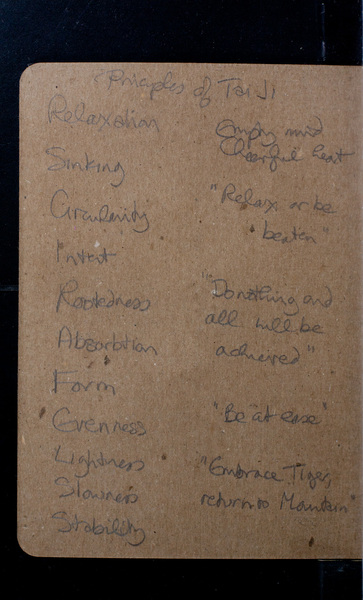 Principles of Tai Ji
Relaxation
Sinking
Circularity
Intent
Rootedness
Absorbtion
Form
Evenness
Lightness
Slowness
Stability
Empty mind
Cheerful heart
"Relax or be
beaten"
"Do nothing and
all will be
achieved"
"Be at ease"
"Embrace Tiger,
return to Mountain"